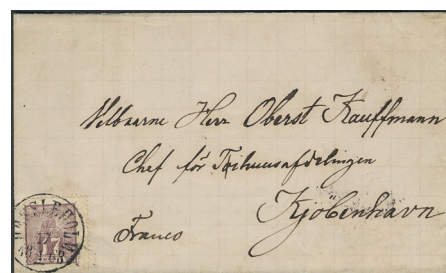 Velbaarne Herr Oberst Kauffmann
Chef för Töihuusafdelingen
Kjöbenhavn
Franco
17